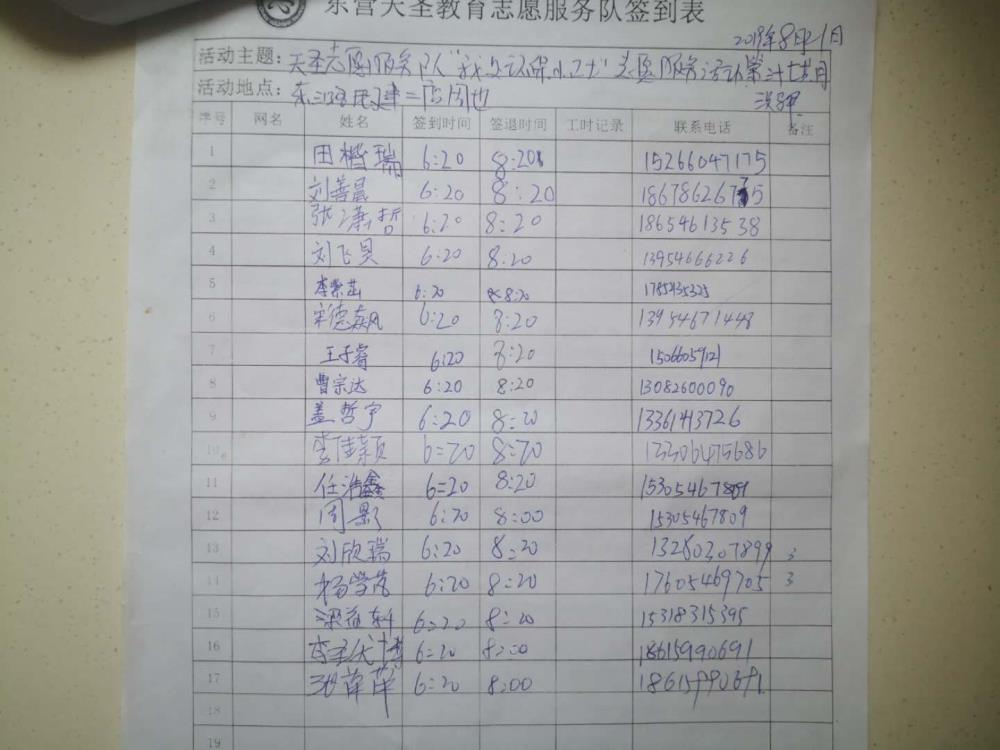 东营天圣教育志愿服务队签到表
2019年8月21日
活动主题：天圣志愿服务队"我是环保小卫士"志愿服务活动第三十七
活动地点：东三路民建二店周边
序号 网名 姓名 签到时间 签退时间 工时记录 联系电话 备注
1 田楷瑞 6:20 8:20 15266047175
2 刘善晨 6:20 8:20 18678626775
3 张潇哲 6:20 8:20 18654613538
4 刘飞贝 6:20 8:20 13954666226
5 6:20 8:20 1785435325
6 宋德森 6:20 8:20 13954671448
7 王子睿 6:20 8:20 15066059121
8 曹宗达 6:20 8:20 13082600090
9 盖哲宇 6:20 8:20 13361413726
10 李佳颖 6:20 8:20 13306475686
11 任浩鑫 6:20 8:20 15305467809
12 周影 6:20 8:00 15305467809
13 刘欣瑞 6:20 8:20 13280307899 3
14 杨 6:20 8:20 17605469705 3
15 梁益轩 6:20 8:20 15318315395
16 6:20 8:00 18615990691
17 张萍萍 6:20 8:00 18615990691
18
19